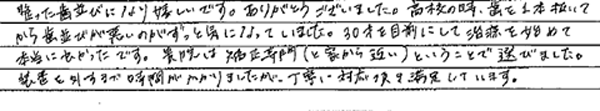 整った歯並びになり嬉しいです。ありがとうございました。高校の時、歯を1本抜いて
から歯並びが悪いのがずっと気になっていました。30才を目前にして治療を始めて
本当によかったです。貴院は矯正専門(と家から近い)ということで選びました。
装置を外すまで時間がかかりましたが、丁寧に対応頂き満足しています。